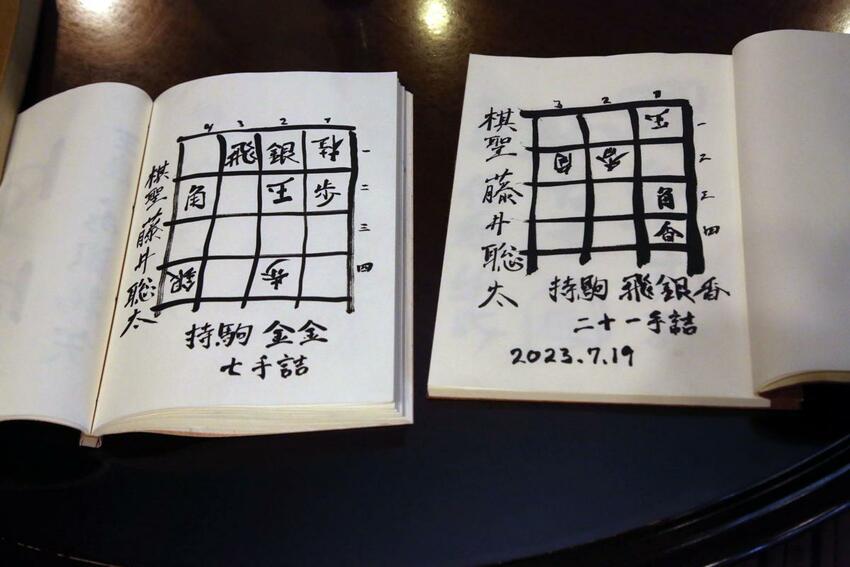 4 3 2 1
飛 銀 桂 一
角 玉 歩 二
三
銀 歩 四
棋聖 藤井聡太
持駒 金金
七手詰
3 2 1
玉 一
角 香 二
角 三
香 四
棋聖 藤井聡太
持駒 飛銀香
二十一手詰
2023.7.19